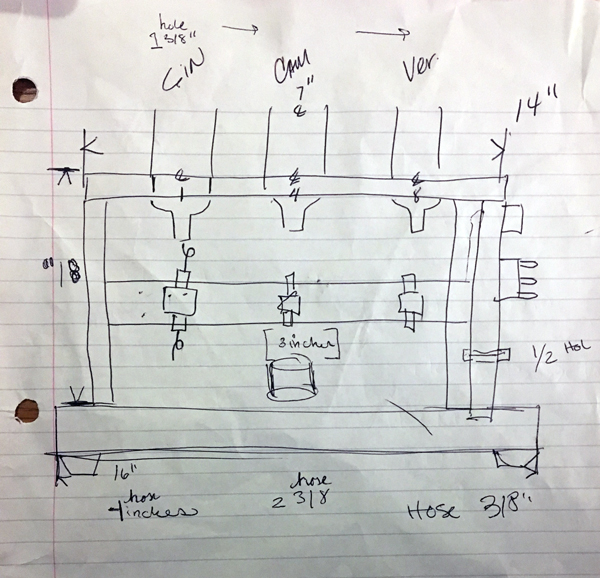 hole
1 3/8"
GiN
CAM
Ver.
7"
14"
1
4
8
"18
3 inches
1/2 Hol
16"
hose
4 inches
hose
2 3/8
HOSE 3/8"